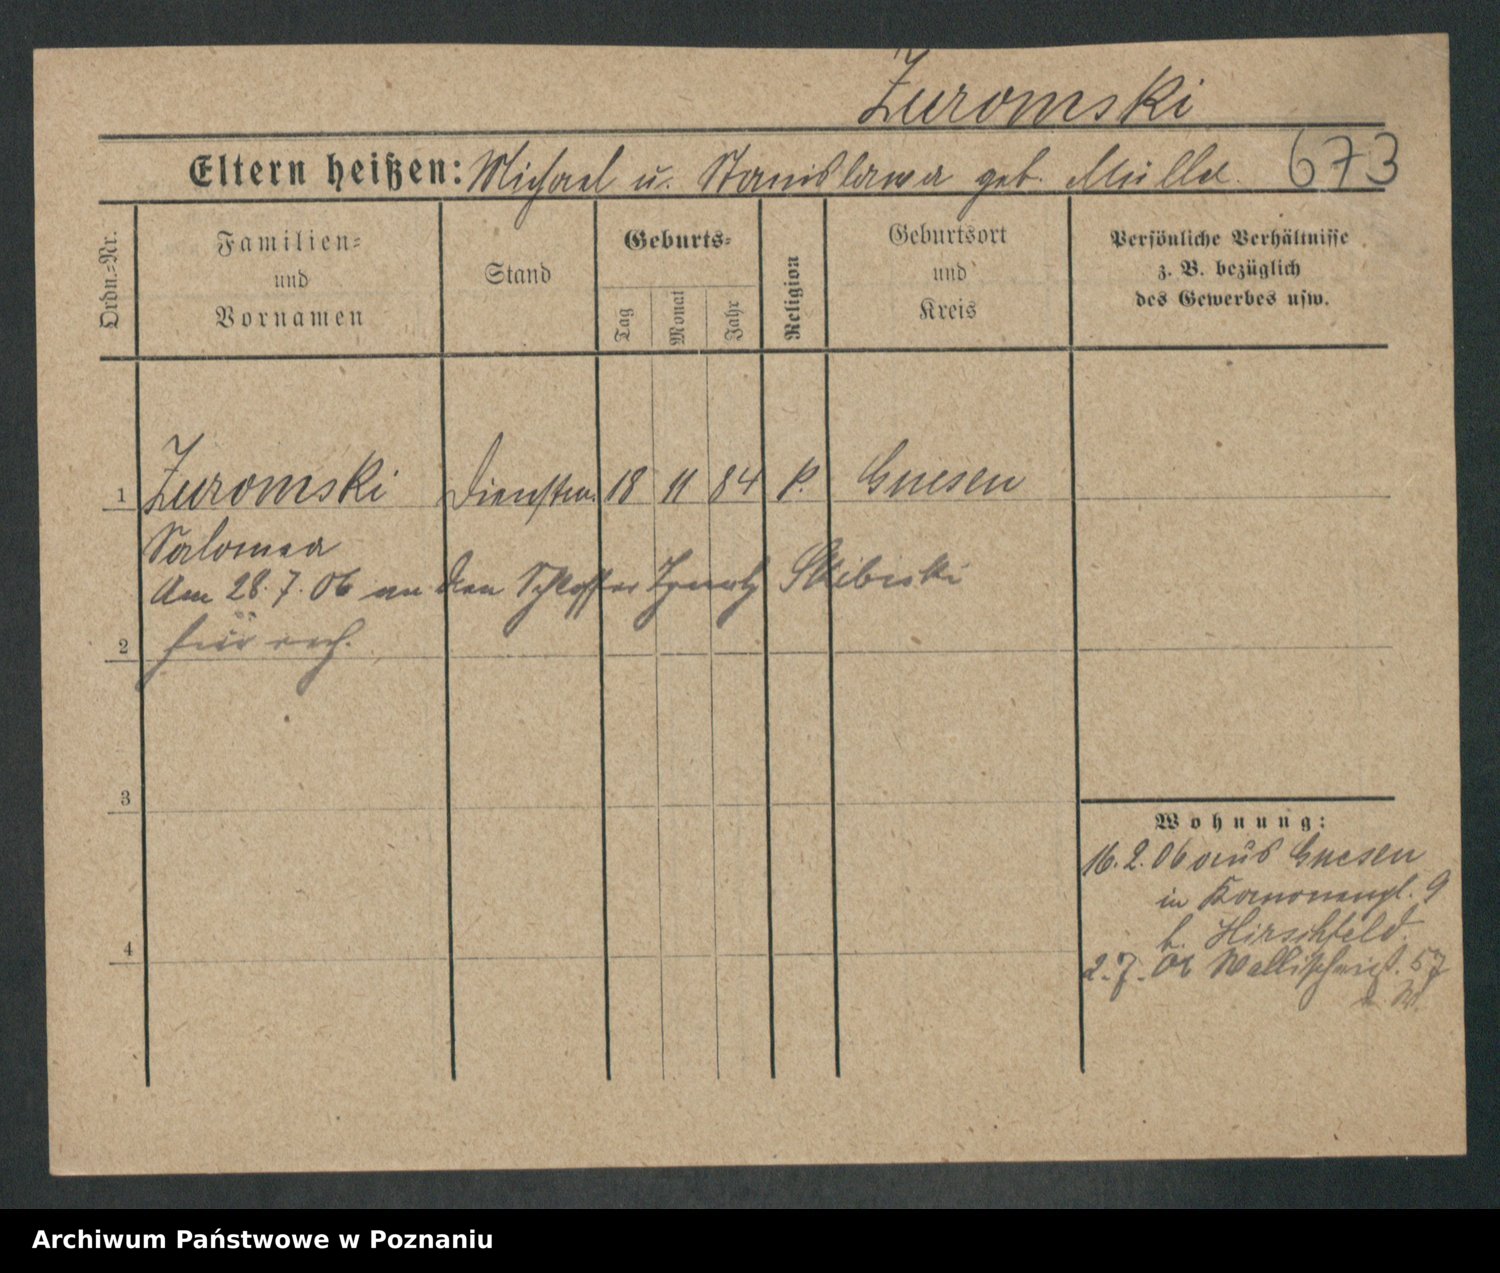 Zuromski
Eltern heißen: Michael u. Stanislawa geb. Müller. 673
Ordn.-Nr.
Familien-
und
Vornamen
Stand
Geburts-
Tag
Monat
Jahr
Religion
Geburtsort
und
Kreis
Persönliche Verhältnisse
z. B. bezüglich
des Gewerbes usw.
1 Zuromski Dienstm. 18 11 84 k. Gnesen
Salomea
Am 28.7.06 an den Schlosser Ignatz Skibiski
2
3
4
Wohnung:
16.2.06 aus Gnesen
in Kanonenpl. 9
b. Hirschfeld.
2.7. Wallischeist. 57
Archiwum Państwowe w Poznaniu